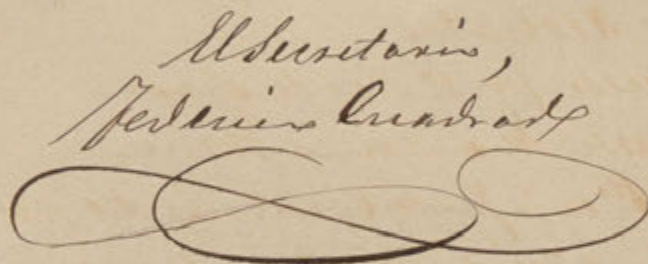 El Secretario,
Federico Cuadrado